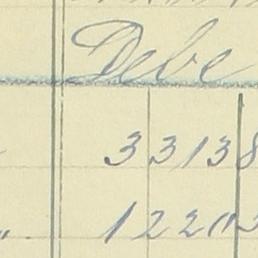 Debe
33138
12203